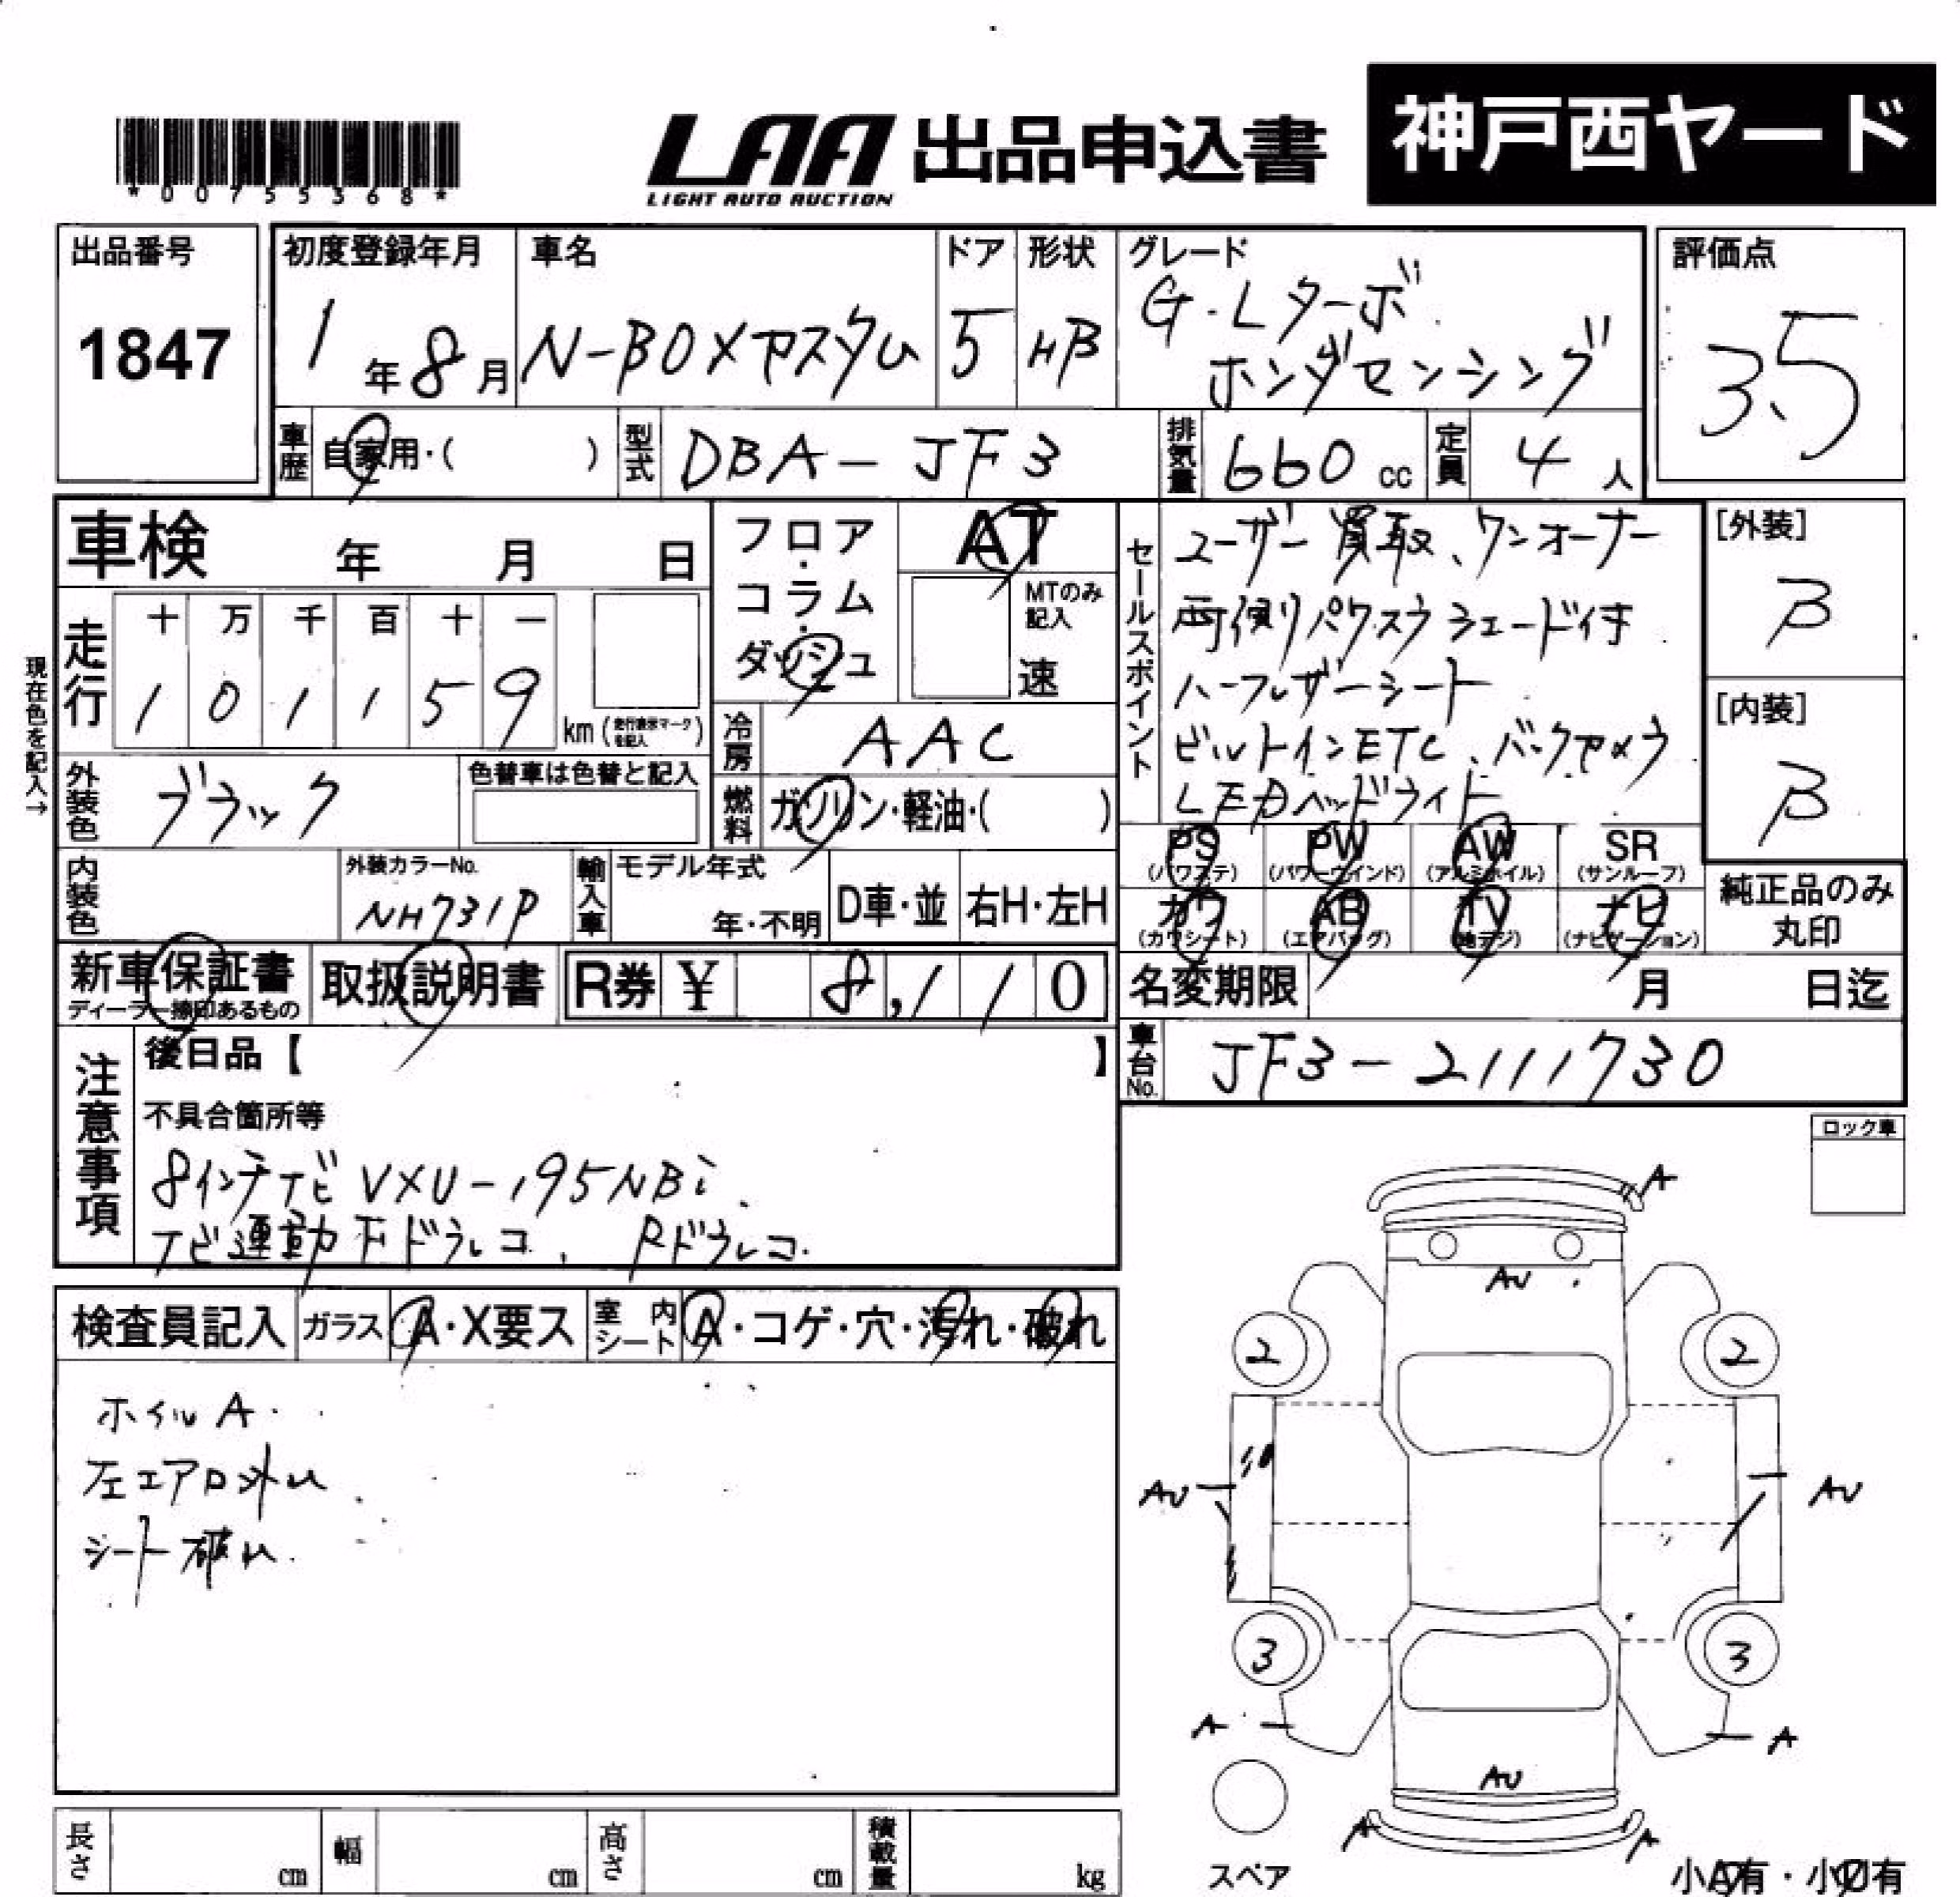 *00755368*
LAA 出品申込書
LIGHT AUTO AUCTION
神戸西ヤード
出品番号
1847
初度登録年月
1年8月
車名
N-BOXカスタム
ドア
5
形状
HB
グレード
G・Lターボ
ホンダセンシング
評価点
3.5
車歴
自家用・( )
型式
DBA-JF3
排気量
660cc
定員
4人
車検 年 月 日
フロア・コラム・ダッシュ
AT
MTのみ記入
速
セールスポイント
ユーザー買取、ワンオーナー
両側パワスラ シェード付き
ハーフレザーシート
ビルトインETC、バックカメラ
LEDヘッドライト
[外装]
B
[内装]
B
現在色を記入→
走行
十 万 千 百 十 一
1 0 1 1 5 9
km(走行表示マークを記入)
冷房
AAC
外装色
ブラック
色替車は色替と記入
燃料
ガソリン・軽油・( )
内装色
外装カラーNo.
NH731P
輸入車
モデル年式
年・不明
D車・並
右H・左H
PS
(パワステ)
PW
(パワーウインド)
AW
(アルミホイル)
SR
(サンルーフ)
カワ
(カワシート)
AB
(エアバッグ)
TV
(地デジ)
ナビ
(ナビゲーション)
純正品のみ
丸印
新車保証書
ディーラー捺印あるもの
取扱説明書
R券 ¥ 8,110
名変期限 月 日迄
車台No.
JF3-2111730
注意事項
後日品【 】
不具合箇所等
8インチナビ VXU-195NBi.
ナビ連動Fドラレコ、Rドラレコ.
ロック車
検査員記入
ガラス
A・X要ス
室内シート
A・コゲ・穴・汚れ・破れ
ホイルA.
左エアロ外れ
シート破れ
A
AU
2
2
AU
AU
3
3
A
A
AU
A
A
スペア
小A有・小U有
長さ cm
幅 cm
高さ cm
積載量 kg